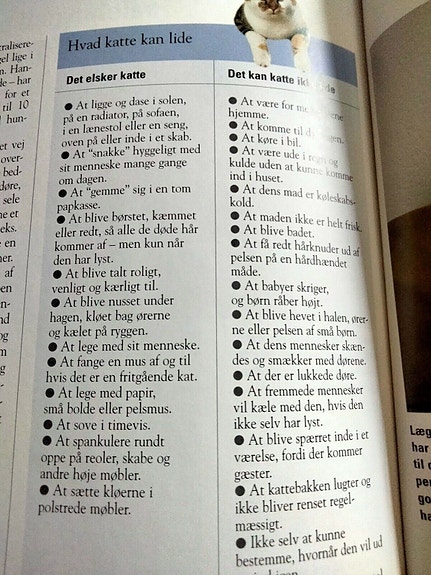 eralisere-
gel lige i
n. Han-
– har
for et
til 10
hun-
et vej
over-
bed-
døre,
sele
ne et
eks.
e en
er
af
og
Hvad katte kan lide
Det elsker katte
● At ligge og dase i solen,
på en radiator, på sofaen,
i en lænestol eller en seng,
oven på eller inde i et skab.
● At “snakke” hyggeligt med
sit menneske mange gange
om dagen.
● At “gemme” sig i en tom
papkasse.
● At blive børstet, kæmmet
eller redt, så alle de døde hår
kommer af – men kun når
den har lyst.
● At blive talt roligt,
venligt og kærligt til.
● At blive nusset under
hagen, kløet bag ørerne
og kælet på ryggen.
● At lege med sit menneske.
● At fange en mus af og til
hvis det er en fritgående kat.
● At lege med papir,
små bolde eller pelsmus.
● At sove i timevis.
● At spankulere rundt
oppe på reoler, skabe og
andre høje møbler.
● At sætte kløerne i
polstrede møbler.
Det kan katte
● At være for
hjemme.
● At komme til
● At køre i bil.
● At være ude i regn og
kulde uden at kunne komme
ind i huset.
● At dens mad er køleskabs-
kold.
● At maden ikke er helt frisk.
● At blive badet.
● At få redt hårknuder ud af
pelsen på en hårdhændet
måde.
● At babyer skriger,
og børn råber højt.
● At blive hevet i halen, ører-
ne eller pelsen af små børn.
● At dens mennesker skæn-
des og smækker med dørene.
● At der er lukkede døre.
● At fremmede mennesker
vil kæle med den, hvis den
ikke selv har lyst.
● At blive spærret inde i et
værelse, fordi der kommer
gæster.
● At kattebakken lugter og
ikke bliver renset regel-
mæssigt.
● Ikke selv at kunne
bestemme, hvornår den vil ud
Læg
har
til
per
go
ha